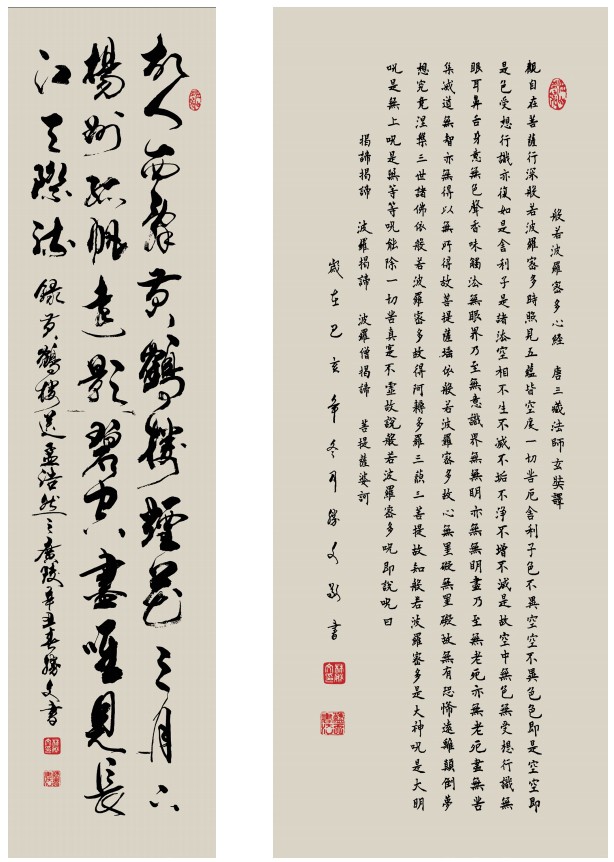 故人西辭黃鶴樓煙花三月下
揚州孤帆遠影碧空盡唯見長
江天際流 錄黃鶴樓送孟浩然之廣陵辛丑春勝文書
般若波羅蜜多心經 唐三藏法師玄奘譯
觀自在菩薩行深般若波羅蜜多時照見五蘊皆空度一切苦厄舍利子色不異空空不異色色即是空空即
是色受想行識亦復如是舍利子是諸法空相不生不滅不垢不淨不增不減是故空中無色無受想行識無
眼耳鼻舌身意無色聲香味觸法無眼界乃至無意識界無無明亦無無明盡乃至無老死亦無老死盡無苦
集滅道無智亦無得以無所得故菩提薩埵依般若波羅蜜多故心無罣礙無罣礙故無有恐怖遠離顛倒夢
想究竟涅槃三世諸佛依般若波羅蜜多故得阿耨多羅三藐三菩提故知般若波羅蜜多是大神咒是大明
咒是無上咒是無等等咒能除一切苦真實不虛故說般若波羅蜜多咒即說咒曰
揭諦揭諦 波羅揭諦 波羅僧揭諦 菩提薩婆訶
歲在己亥年冬月勝文敬書